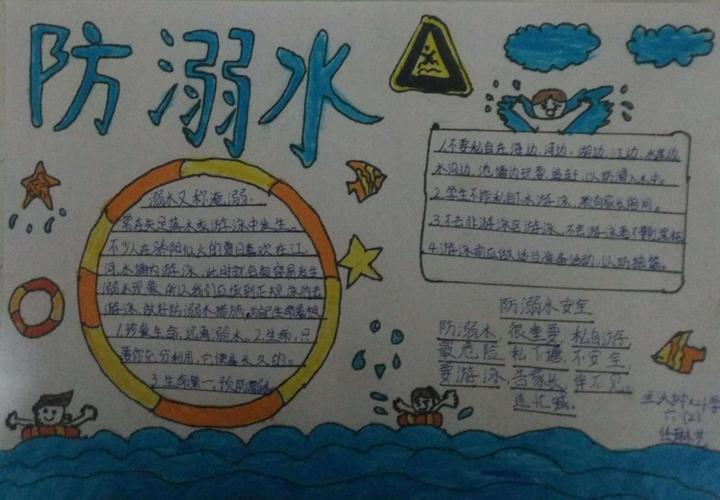 防溺水
溺水又称淹溺.
常在失足落水或游泳中发生.
不少人在骄阳似火的夏日喜欢在江、
河、水塘内游泳,此时就会很容易发生
溺水现象,所以我们应做到正规泳池去
游泳,做好防溺水措施,
1.珍爱生命,远离溺水。2.生命,只
要你充分利用,它便是长久的。
3.生命第一,预防溺水
1.不要私自在海边、河边、湖边、江边、水库边
水沟边、池塘边玩耍、追赶,以防滑入水中。
2.学生不能私自下水游泳,
3.不去非游泳区游泳,不会游泳者不要到深
4.游泳前应做适当准备活动,以防抽筋。
防溺水安全
防溺水 很重要 私自游
最危险 私下塘 不安全
要游泳 告家长 伴不见
连忙喊。
中心小学
六(2)